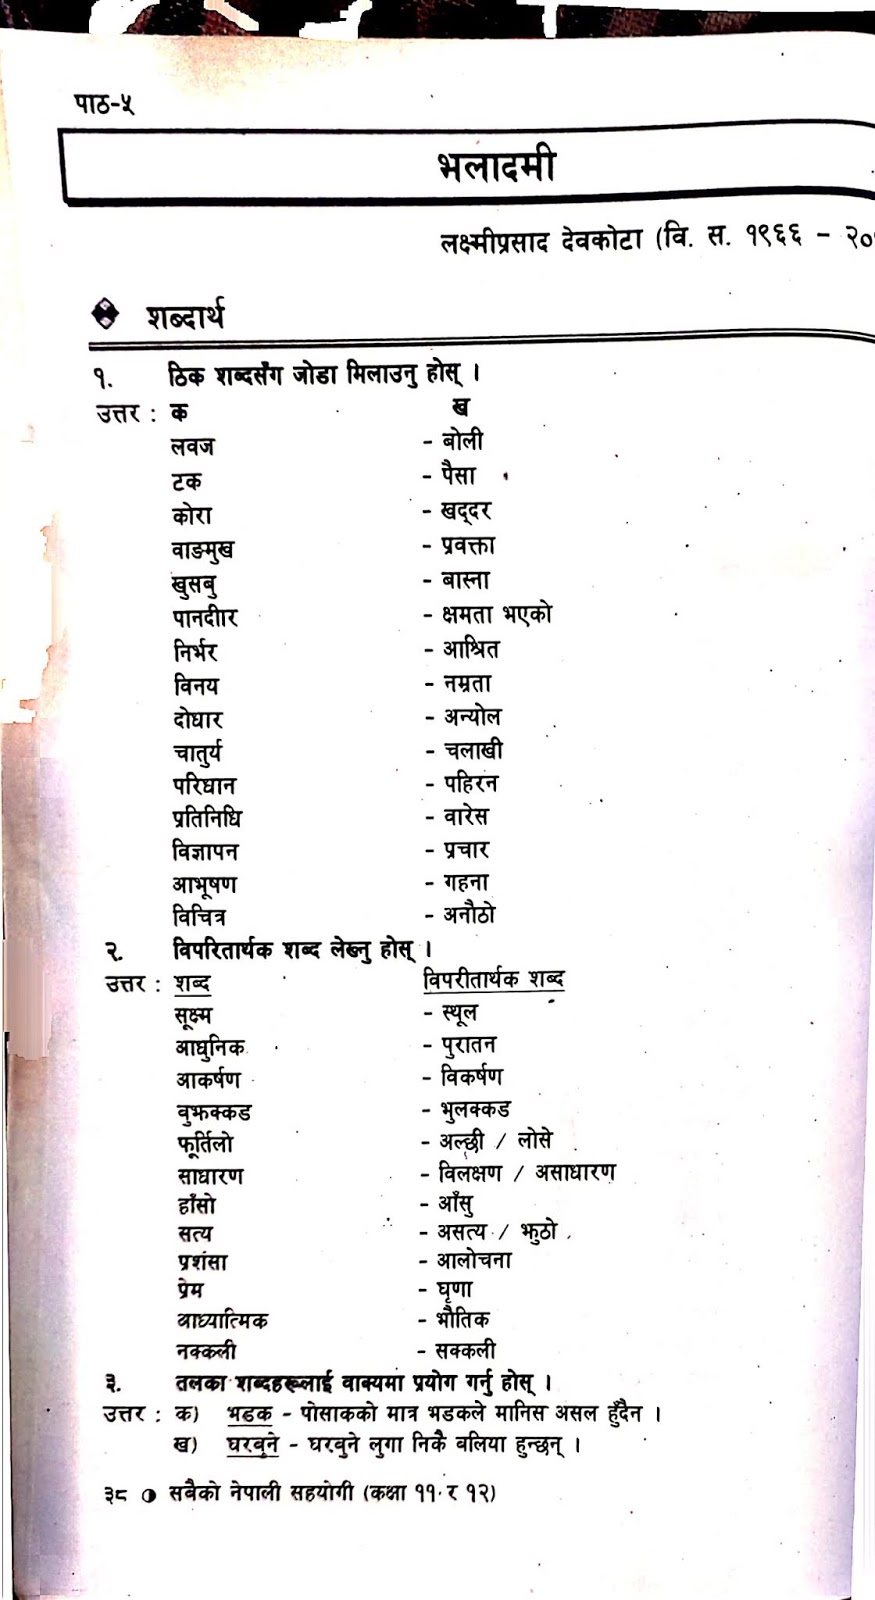 पाठ-५
भलादमी
लक्ष्मीप्रसाद देवकोटा (वि. स. १९६६ –
शब्दार्थ
१. ठिक शब्दसँग जोडा मिलाउनु होस् ।
उत्तर : क ख
लवज - बोली
टक - पैसा
कोरा - खद्दर
वाङमुख - प्रवक्ता
खुसबु - बास्ना
पानदीार - क्षमता भएको
निर्भर - आश्रित
विनय - नम्रता
दोधार - अन्योल
चातुर्य - चलाखी
परिधान - पहिरन
प्रतिनिधि - वारेस
विज्ञापन - प्रचार
आभूषण - गहना
विचित्र - अनौठो
२. विपरितार्थक शब्द लेख्नु होस् ।
उत्तर : शब्द विपरीतार्थक शब्द
सूक्ष्म - स्थूल
आधुनिक - पुरातन
आकर्षण - विकर्षण
वुझक्कड - भुलक्कड
फूर्तिलो - अल्छी / लोसे
साधारण - विलक्षण / असाधारण
हाँसो - आँसु
सत्य - असत्य / झुठो
प्रशंसा - आलोचना
प्रेम - घृणा
आध्यात्मिक - भौतिक
नक्कली - सक्कली
३. तलका शब्दहरूलाई वाक्यमा प्रयोग गर्नु होस् ।
उत्तर : क) भडक - पोसाकको मात्र भडकले मानिस असल हुँदैन ।
ख) घरबुने - घरबुने लुगा निकै बलिया हुन्छन् ।
३८ सबैको नेपाली सहयोगी (कक्षा ११ र १२)